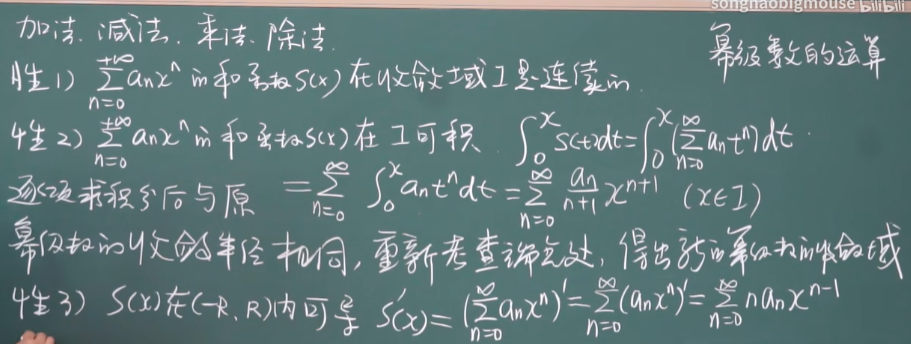 songhaobigmouse bilibili
幂级数的运算
加法、减法、乘法、除法
性1) \sum_{n=0}^{+\infty} a_n x^n 的和函数 S(x) 在收敛域 I 是连续的.
性2) \sum_{n=0}^{+\infty} a_n x^n 的和函数 S(x) 在 I 可积 \int_0^x S(t)dt = \int_0^x (\sum_{n=0}^{\infty} a_n t^n)dt.
逐项求积分后与原 = \sum_{n=0}^{\infty} \int_0^x a_n t^n dt = \sum_{n=0}^{\infty} \frac{a_n}{n+1} x^{n+1} (x∈I)
幂级数的收敛半径相同, 重新考查端点处, 得出新的幂级数的收敛域
性3) S(x) 在 (-R, R) 内可导 S'(x) = (\sum_{n=0}^{\infty} a_n x^n)' = \sum_{n=0}^{\infty} (a_n x^n)' = \sum_{n=0}^{\infty} n a_n x^{n-1}